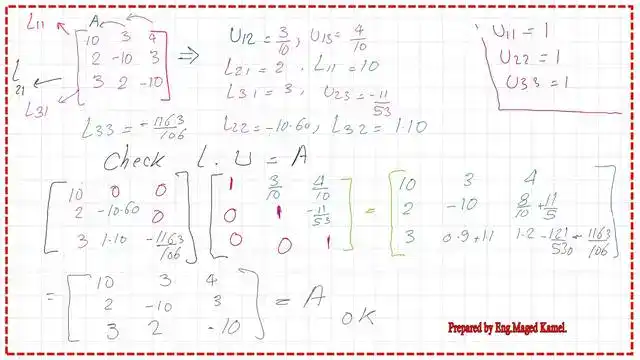 L11 A
10 3 4
2 -10 3
3 2 -10
L21
L31
⇒
U12 = 3/10, U13 = 4/10
L21 = 2 . L11 = 10
L31 = 3, U23 = -11/53
L33 = -1163/106 L22 = -10.60, L32 = 1.10
U11 = 1
U22 = 1
U33 = 1
Check L.U = A
10 0 0
2 -10.60 0
3 1.10 -1163/106
1 3/10 4/10
0 1 -11/53
0 0 1
=
10 3 4
2 -10 8/10 + 11/5
3 0.9+11 1.2 -121/530 - 1163/106
= 10 3 4
2 -10 3
3 2 -10
= A OK
Prepared by Eng.Maged Kamel.